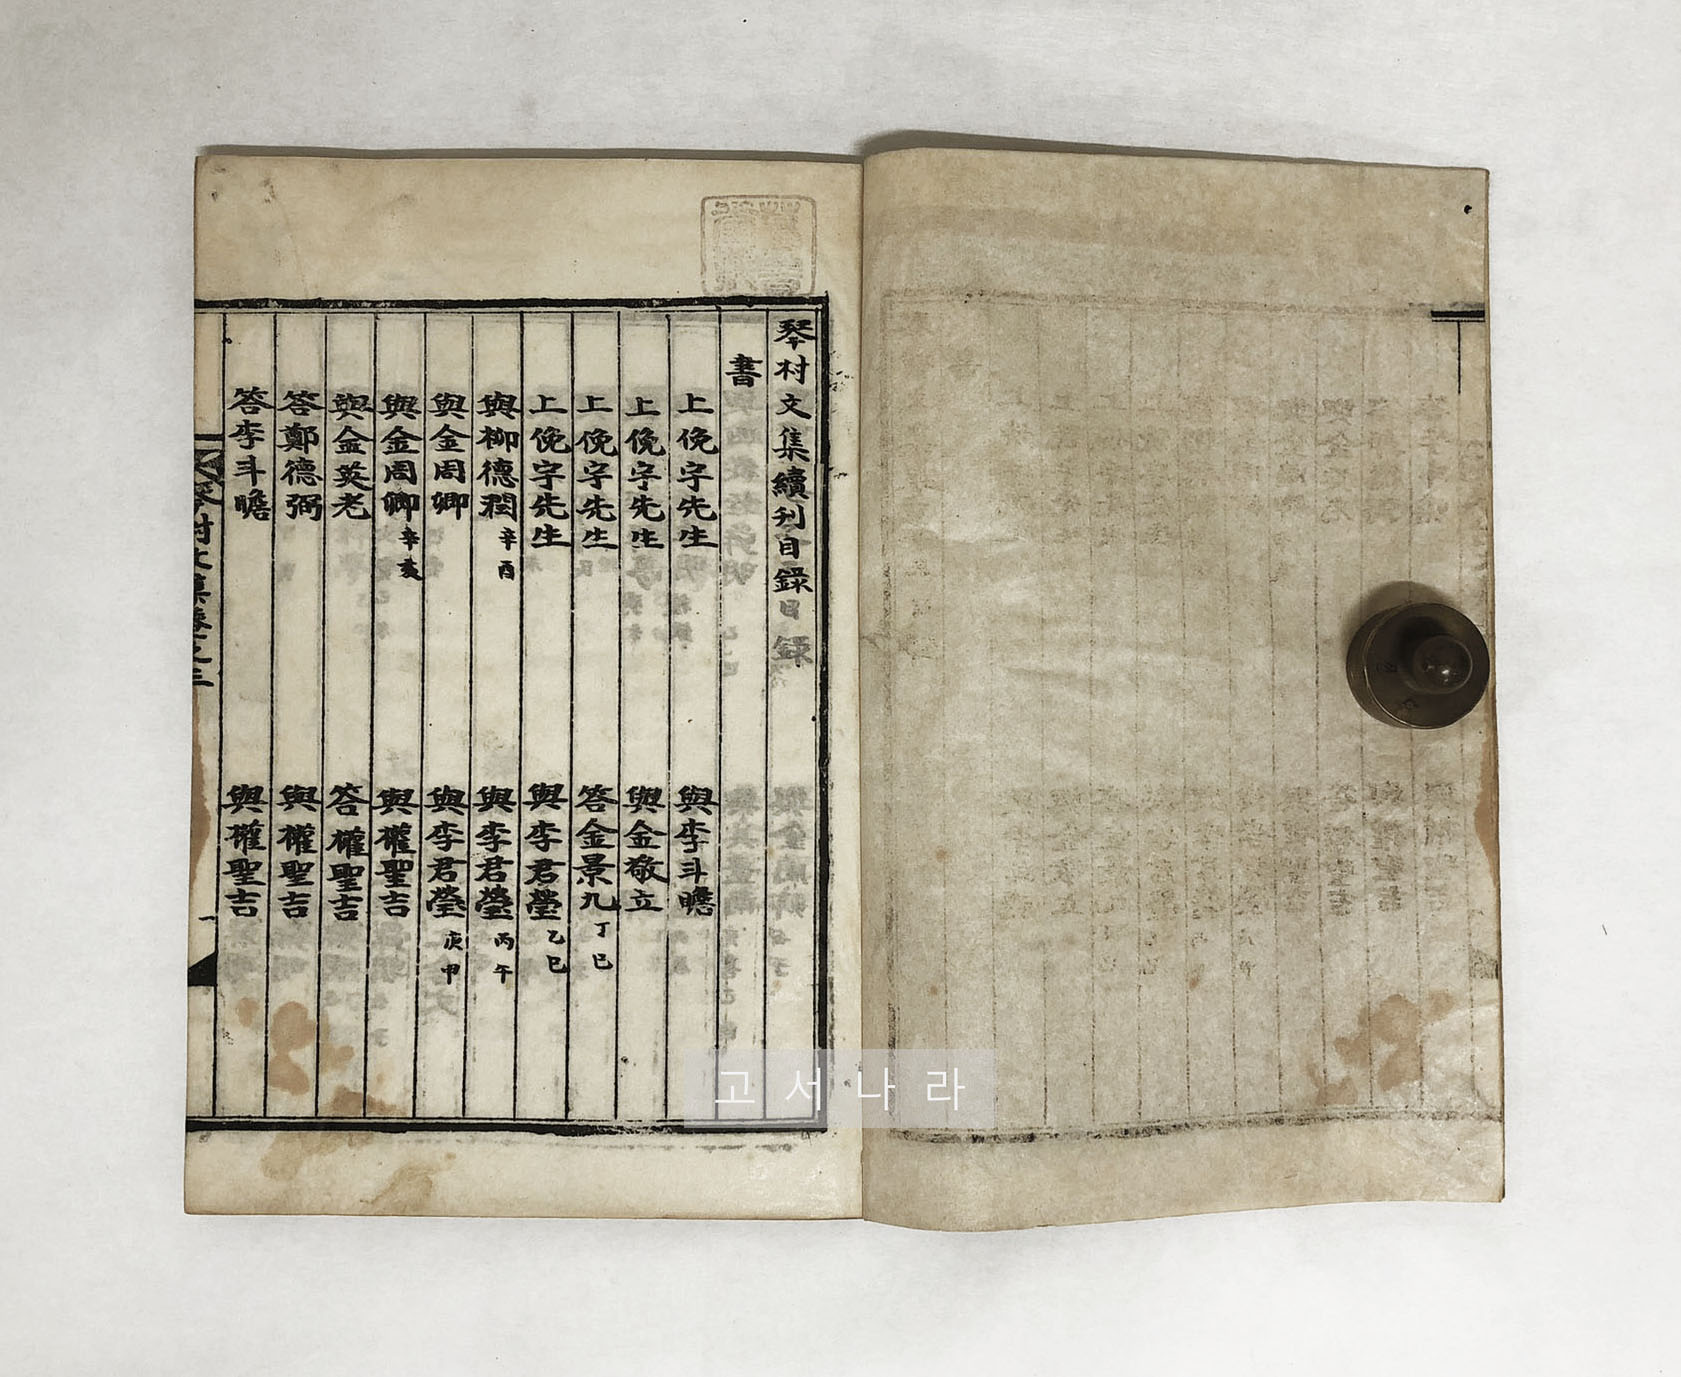 琴村文集續刊目錄
書
上俛宇先生
與李斗瞻
上俛宇先生
與金敬立
上俛宇先生
答金景九 丁巳
上俛宇先生
與李君瑩 乙巳
與柳德潤 辛酉
與李君瑩 丙午
與金周卿
與李君瑩 庚申
與金周卿 辛亥
與權聖吉
與金英老
答權聖吉
答鄭德弼
與權聖吉
答李斗瞻
與權聖吉
琴村文集卷之三
一
고서나라